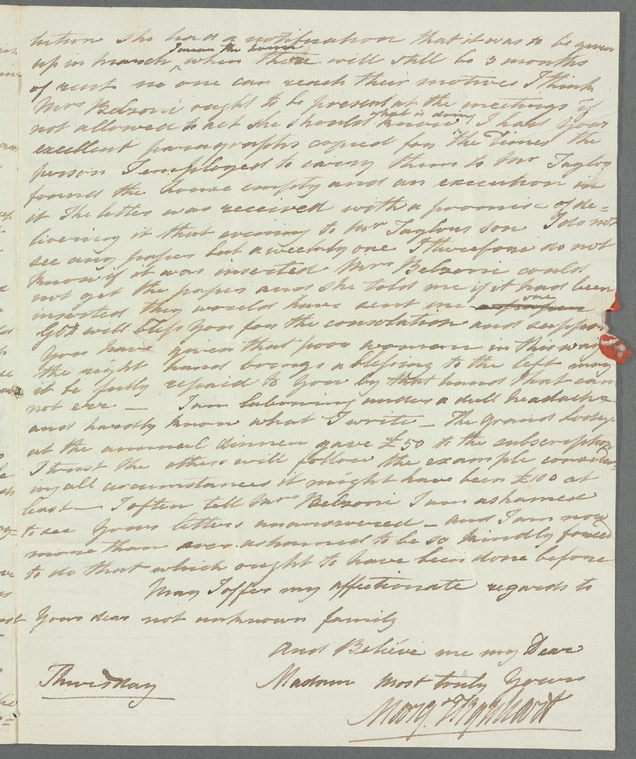 tution she had a notification that it was to be given
up in march I mean the house when there will still be 3 months
of rent no one can reach their motives I think
Mrs Belzoni ought to be present at the meetings if
not allowed to act she should know what is doing I had your
excellent paragraphs copied for The Times the
person I employed to carry them to Mr Taylor
found the house empty and an execution in
it The letter was received with a promise of de=
livering it that evening to Mr Taylors son I do not
see any papers but a weekly one I therefore do not
know if it was inserted Mrs Belzoni could
not get the papers and she told me if it had been
inserted they would have sent me one
God will bless you for the consolation and support
you have given that poor woman in this way
the right hand brings a blessing to the left may
it be fully repaid to you by that hand that can
not err — I am labouring under a dull headache
and hardly know what I write — The Grand Lodge
at the annual dinner gave £50 to the subscription
I trust the others will follow the example
in all circumstances it might have been £100 at
least — I often tell Mrs Belzoni I am ashamed
to see yours letters unanswered — and I am now
more than ever ashamed to be so kindly forced
to do that which ought to have been done before
May I offer my affectionate regards to
your dear not unknown family
And Believe me my Dear
Madam most truly Yours
Thursday